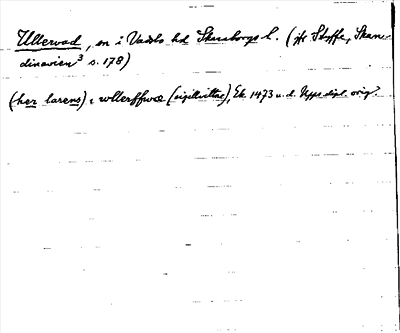 Ullervad, sn i Vadsbo hd Skaraborgs l. (jfr Styffe, Skan-
dinavien³ s. 178)
(her larens) i wllerffwæ (sigillvittne), Ek 1473 u.d. Upps dipl. orig.